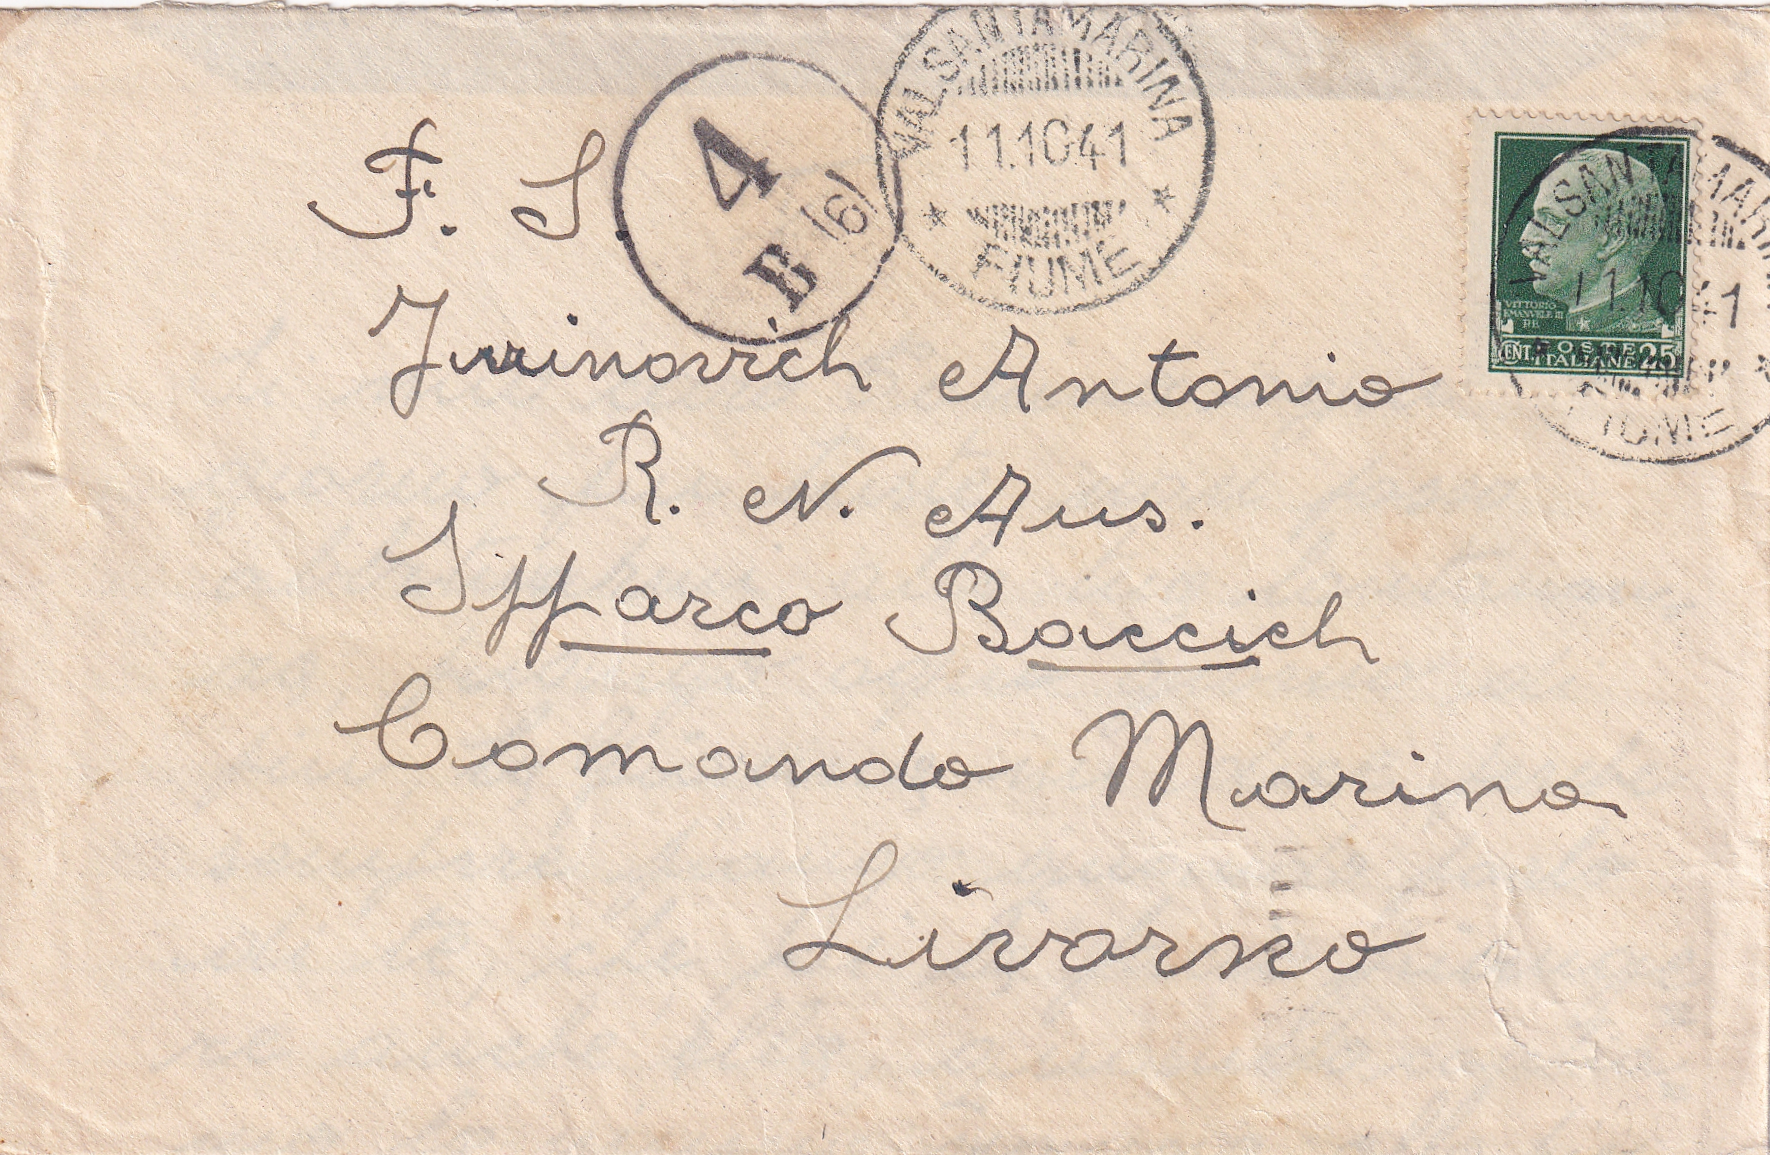 VALSANTAMARINA
11.10 41
FIUME
4
B (6)
F. S.
VALSANTAMAR
11.10 41
FIUME
VITTORIO
EMANVELE III
RE
POSTE
CENT. ITALIANE 25
Jurinovich Antonio
R. N. Aus.
Ipparco Baccich
Comando Marina
Livorno